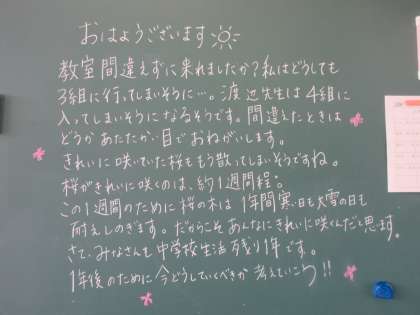 おはようございます
教室間違えずに来れましたか?私はどうしても
3組に行ってしまいそうに…。渡辺先生は4組に
入ってしまいそうになるそうです。間違えたときは
どうかあたたかい目でおねがいします。
きれいに咲いていた桜ももう散ってしまいそうですね。
桜がきれいに咲くのは、約1週間程。
この1週間のために桜の木は1年間寒い日も大雪の日も
耐えしのぎます。だからこそあんなにきれいに咲くんだと思います。
さて、みなさんも中学校生活残り1年です。
1年後のために今どうしていくべきか考えていこう!!